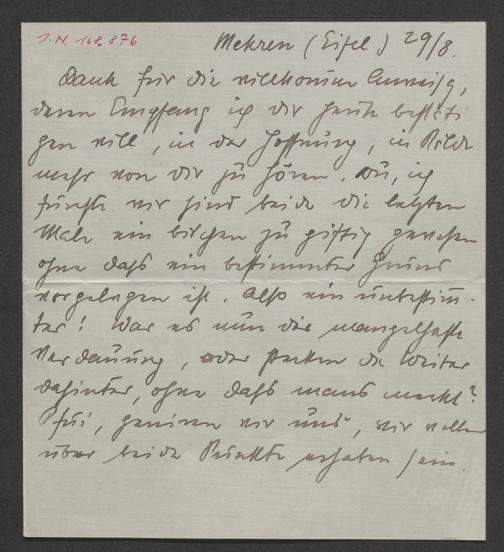 J.N. 168.876
Mehren (Eifel) 29/8.
Dank für die willkomme Anweisg,
deren Empfang ich dir heute bestäti
gen will, in der Hoffnung, in Bälde
mehr von dir zu hören. Du, ich
fürchte wir sind beide die letzten
Male ein bischen zu giftig gewesen
ohne daß ein bestimmter Grund
vorgelegen ist. Also ein unbestimm-
ter! War es nun die mangelhafte
Verdauung, oder stecken die Weiber
dahinter, ohne daß mans merkt?
Pfui, genieren wir uns, wir wollen
über beide Punkte erhaben sein.